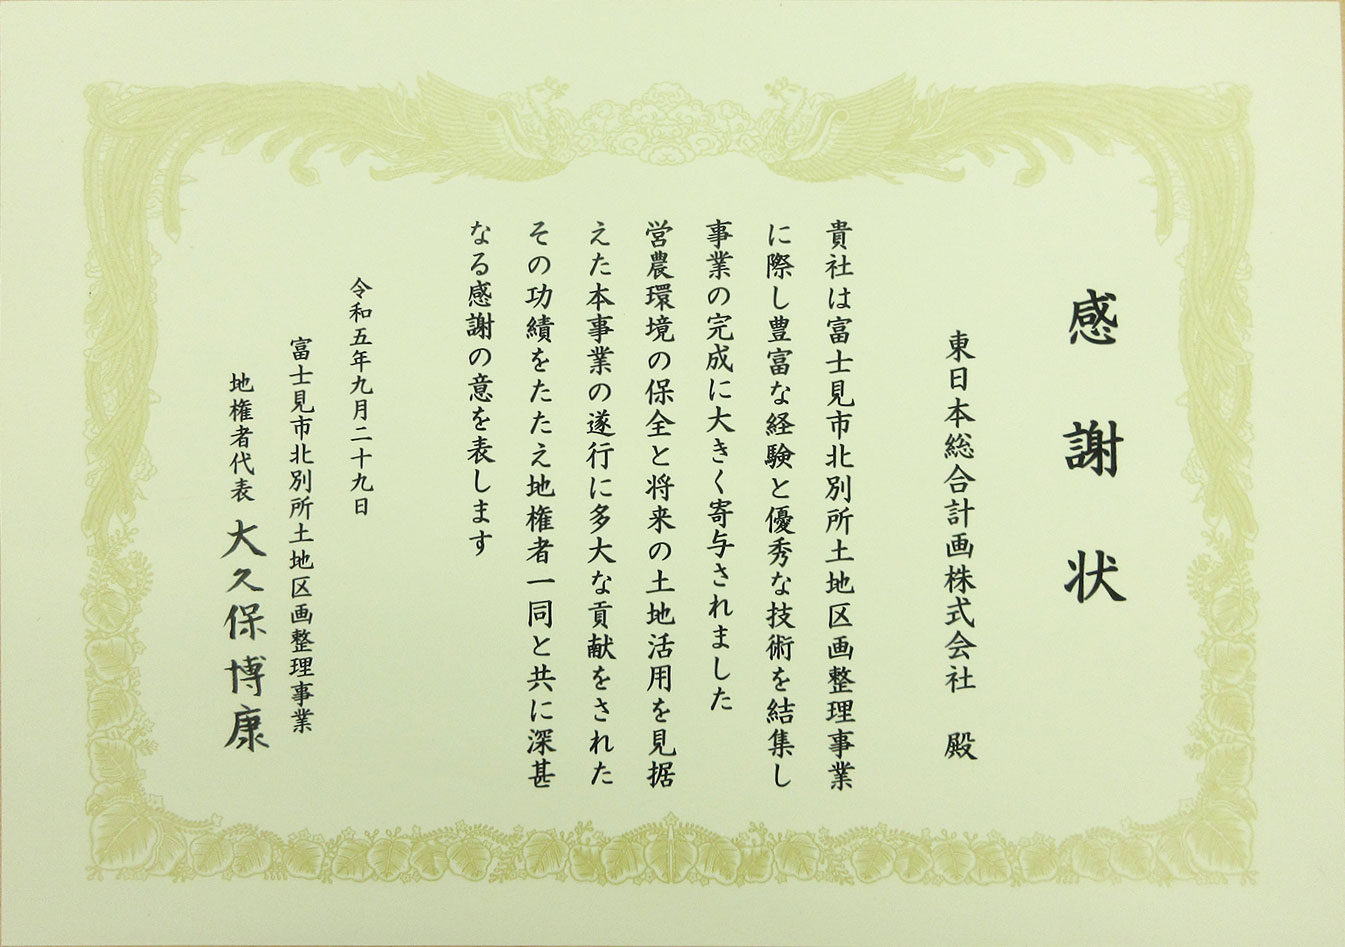 感謝状
東日本総合計画株式会社 殿
貴社は富士見市北別所土地区画整理事業
に際し豊富な経験と優秀な技術を結集し
事業の完成に大きく寄与されました
営農環境の保全と将来の土地活用を見据
えた本事業の遂行に多大な貢献をされた
その功績をたたえ地権者一同と共に深甚
なる感謝の意を表します
令和五年九月二十九日
富士見市北別所土地区画整理事業
地権者代表 大久保博康